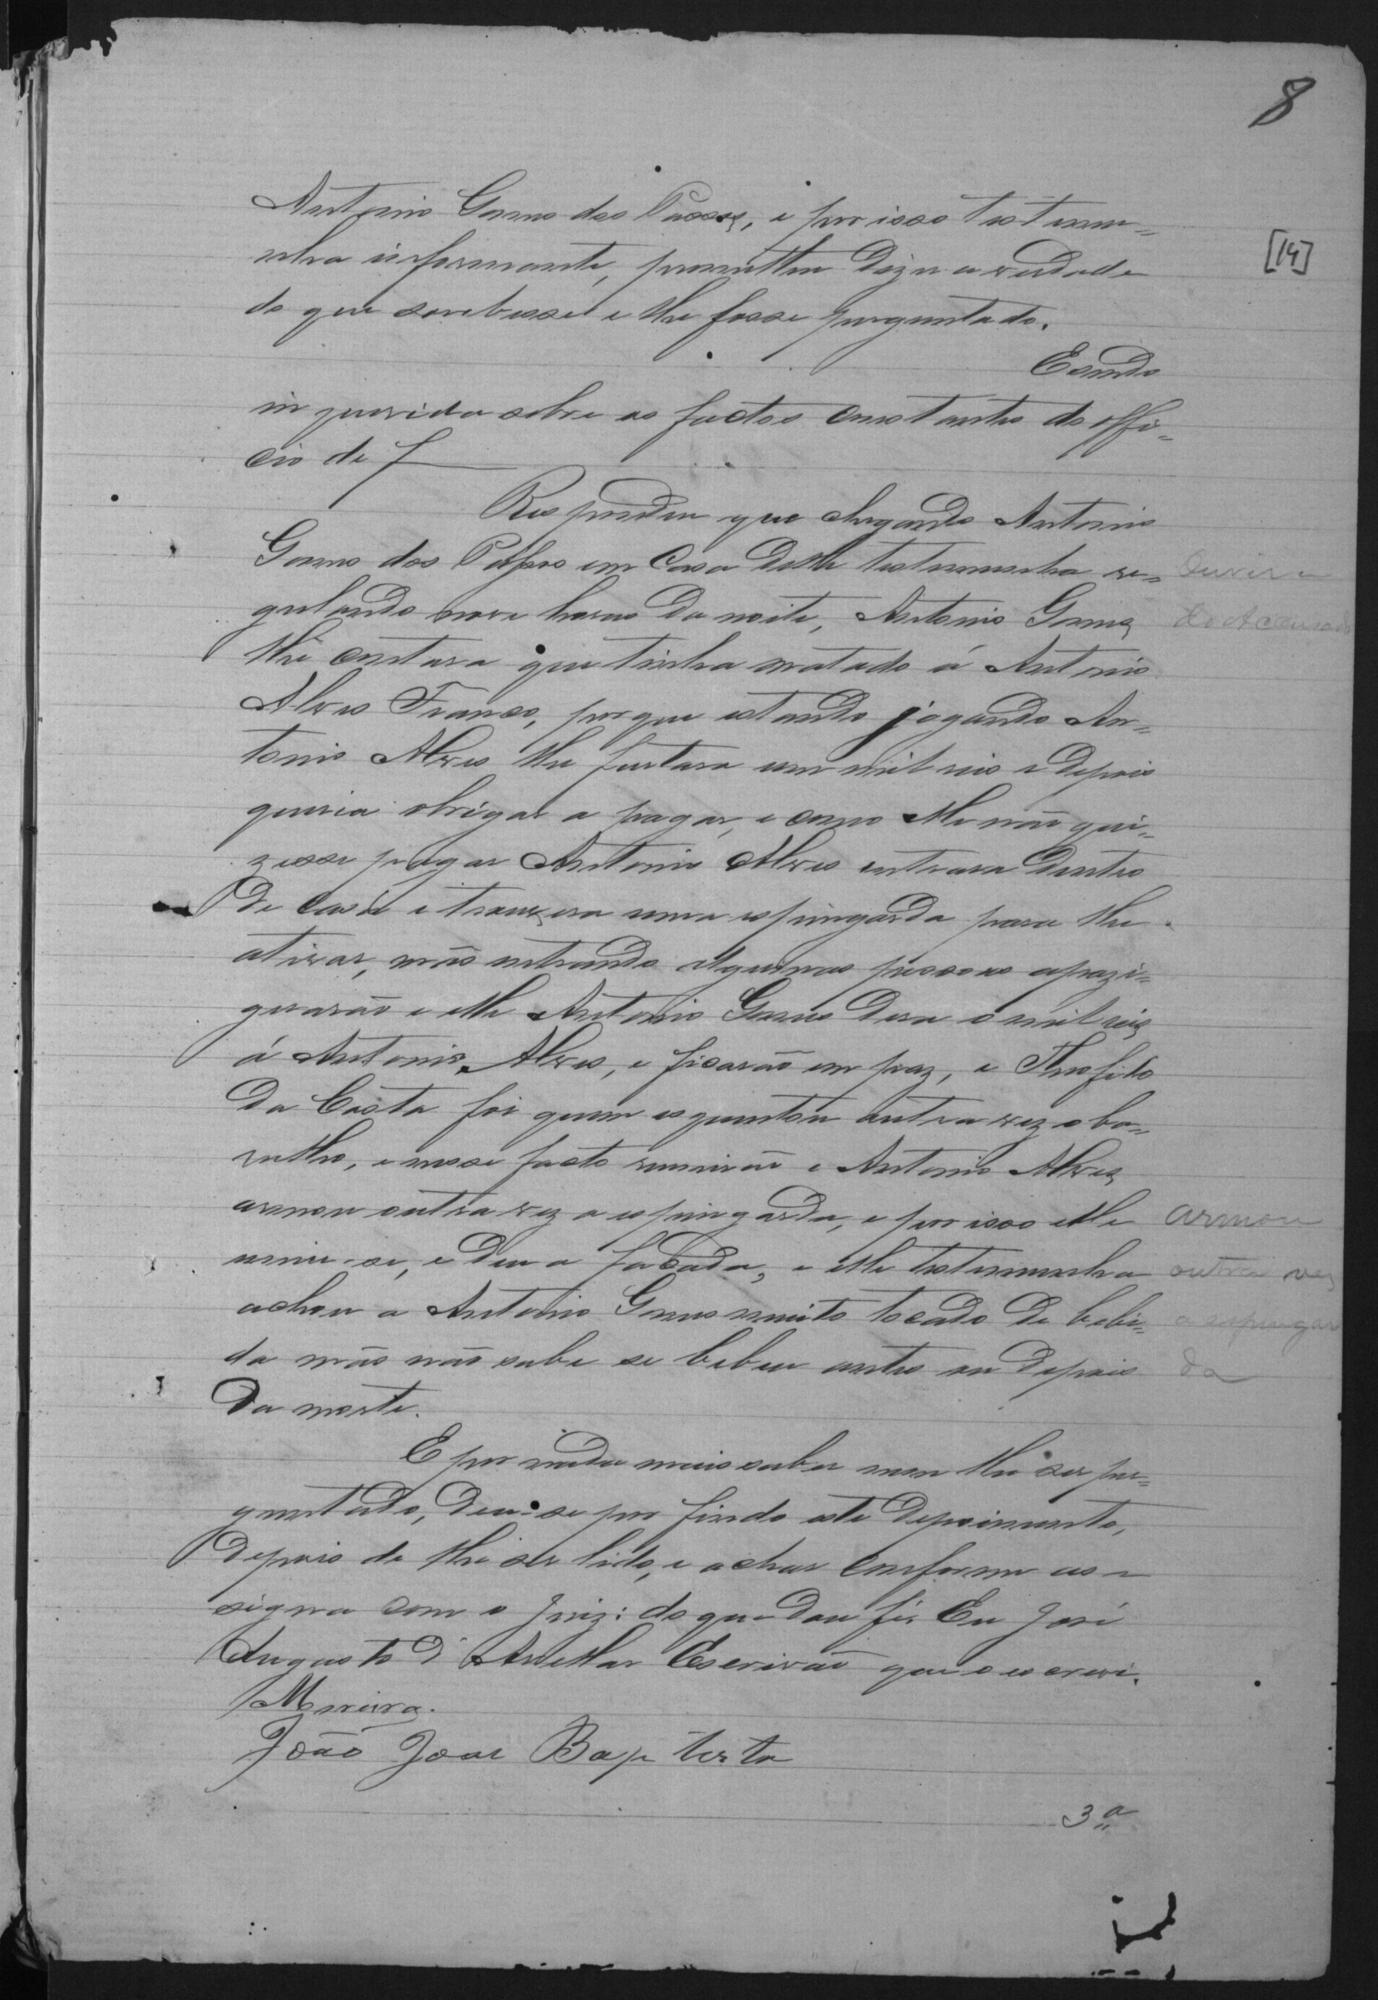 8
[14]
Antonio Gomes dos Passos, e por isso testemu=
nha informante, prometteu dizer a verdade
do que soubesse e lhe fosse perguntado.
E sendo
inquerida sobre os factos constantes do offi=
cio de f
Respondeu que chegando Antonio
Gomes dos Passos em casa delle testemunha re=
gulando nove horas da noite, Antonio Gomes
lhe contara que tinha matado á Antonio
Alves Franco, porque estando jogando An=
tonio Alves lhe furtara um mil reis e depois
queria obrigar a pagar, e como elle não qui=
zesse pagar Antonio Alves entrara dentro
de casa e trouxera uma espingarda para lhe
atirar, mas entrando algumas pessoas apazi=
guarão e elle Antonio Gomes dera o mil reis
á Antonio Alves, e ficarão em paz, e Theofilo
da Costa foi quem esquentou outra vez o ba=
rulho, e nesse facto reunirão e Antonio Alves
armou outra vez a espingarda, e por isso elle
uniu-se, e deu a facada, e elle testemunha
achou a Antonio Gomes muito tocado de bebi=
da mas não sabe se bebeu antes ou depois
da morte.
Ouvira
do Accusado
armou
outra vez
a espingar
da
E por nada mais saber nem lhe ser per=
guntado, deu-se por findo este depoimento,
depois de lhe ser lido, e achar conforme as=
signa com o Juiz: do que dou fé. Eu José
Augusto d'Avellar Escrivão que o escrevi.
Moreira.
João José Baptista
3ª